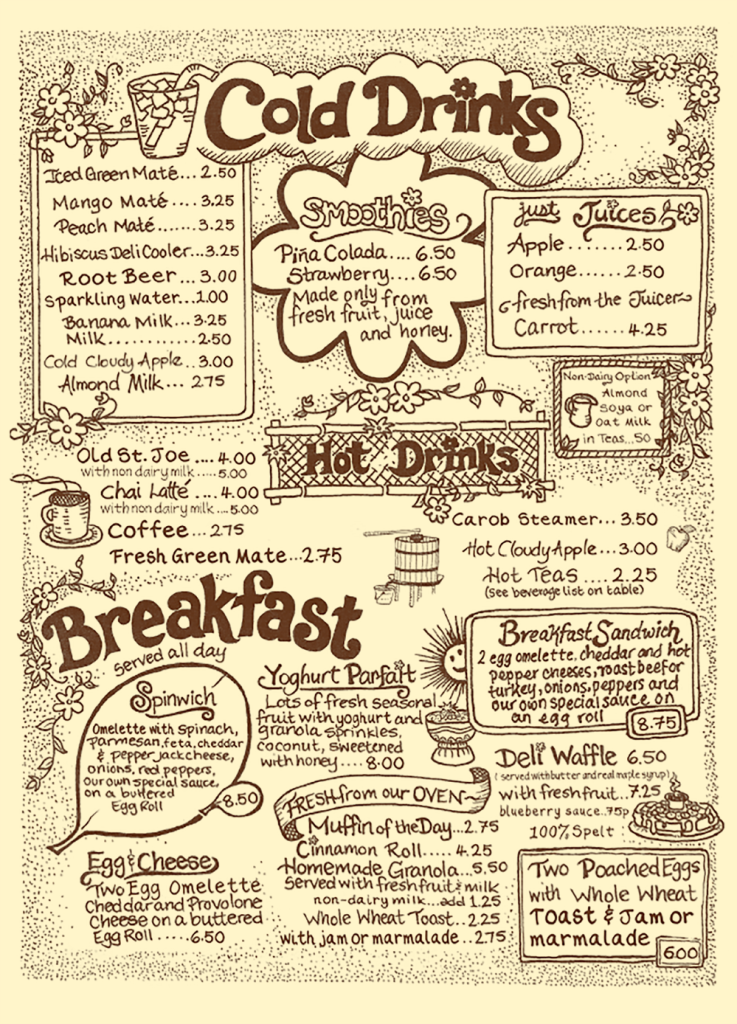 Cold Drinks
Iced Green Maté... 2.50
Mango Maté .... 3.25
Peach Maté...... 3.25
Hibiscus Deli Cooler...3.25
Root Beer ... 3.00
Sparkling Water...1.00
Banana Milk... 3.25
Milk............ 2.50
Cold Cloudy Apple.. 3.00
Almond Milk... 2.75
Smoothies
Piña Colada.... 6.50
Strawberry.... 6.50
Made only from
fresh fruit, juice
and honey.
just Juices
Apple ....... 2.50
Orange ...... 2.50
fresh from the Juicer
Carrot ...... 4.25
Non-Dairy Option
Almond
Soya or
Oat Milk
in Teas...50
Hot Drinks
Old St. Joe .... 4.00
with non dairy milk ... 5.00
Chai Latté .... 4.00
with non dairy milk .... 5.00
Coffee ... 2.75
Fresh Green Mate...2.75
Carob Steamer... 3.50
Hot Cloudy Apple... 3.00
Hot Teas .... 2.25
(see beverage list on table)
Breakfast
served all day
Spinwich
Omelette with spinach,
parmesan, feta, cheddar
& pepper jack cheese,
onions, red peppers,
our own special sauce,
on a buttered
Egg Roll
8.50
Yoghurt Parfait
Lots of fresh seasonal
fruit with yoghurt and
granola sprinkles,
coconut, sweetened
with honey .... 8.00
Breakfast Sandwich
2 egg omelette, cheddar and hot
pepper cheeses, roast beef or
turkey, onions, peppers and
our own special sauce on
an egg roll
8.75
Deli Waffle 6.50
(served with butter and real maple syrup)
with fresh fruit...7.25
blueberry sauce..75p
100% Spelt :
FRESH from our OVEN
Muffin of the Day...2.75
Cinnamon Roll..... 4.25
Homemade Granola...5.50
served with fresh fruit & milk
non-dairy milk...add 1.25
Whole Wheat Toast...2.25
with jam or marmalade..2.75
Egg & Cheese
Two Egg Omelette
Cheddar and Provolone
Cheese on a buttered
Egg Roll .....6.50
Two Poached Eggs
with Whole Wheat
Toast & Jam or
marmalade
6.00